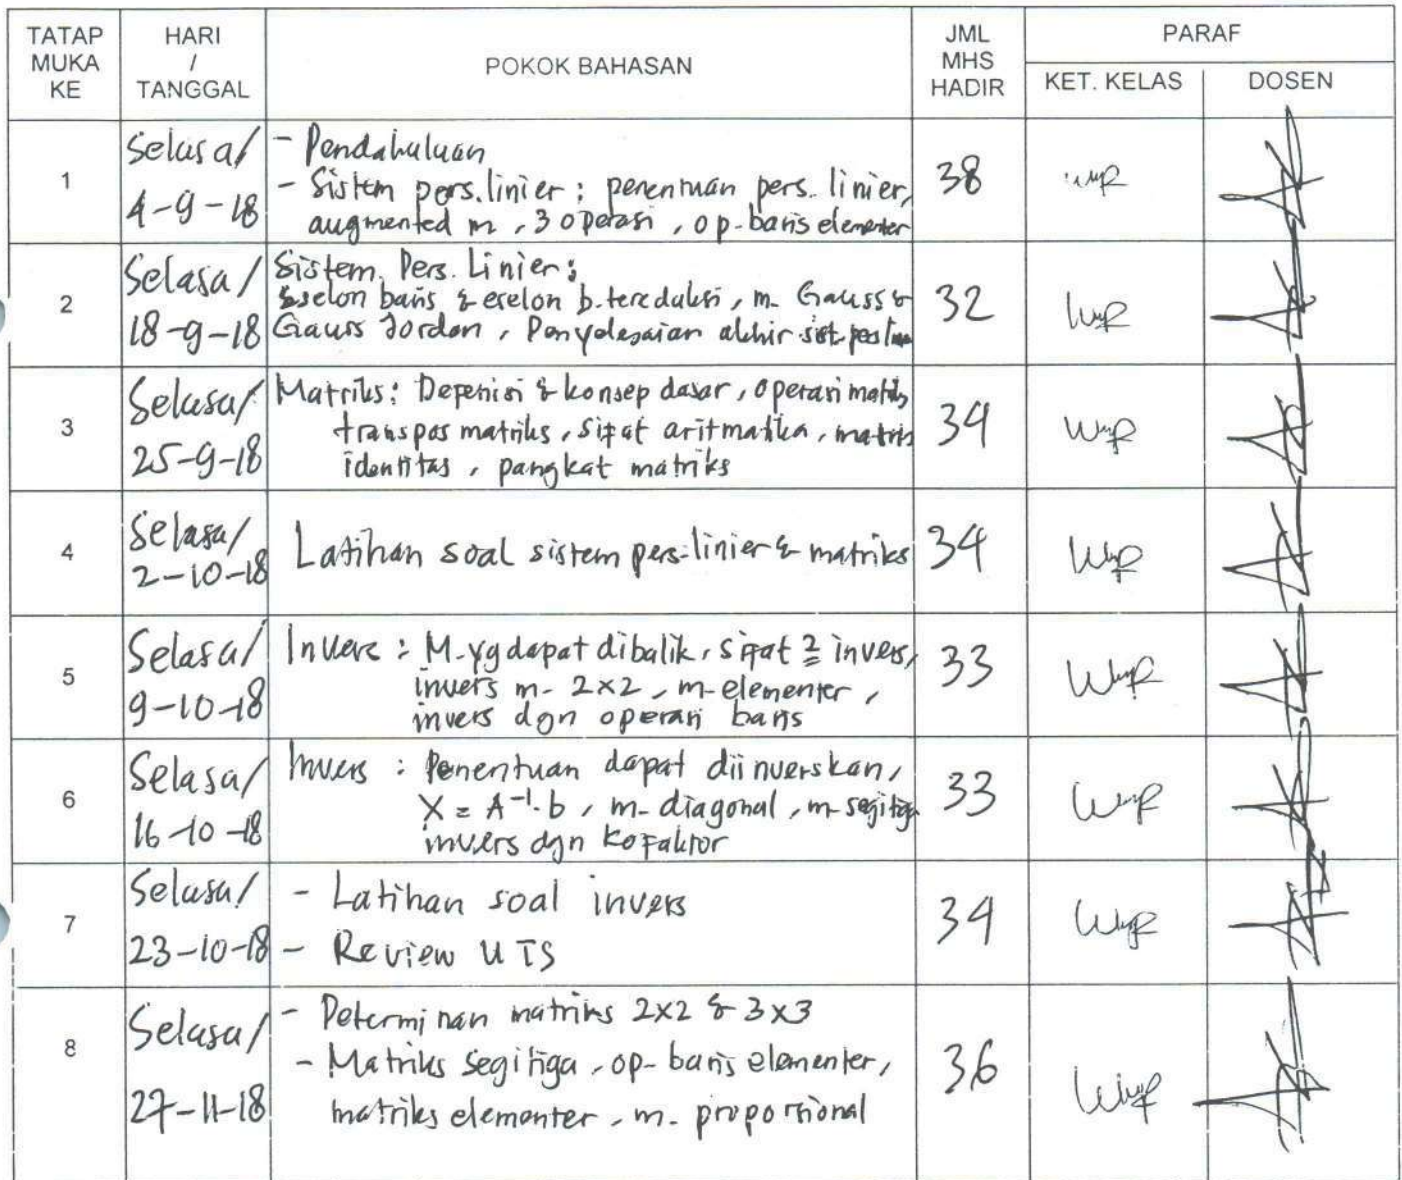 TATAP MUKA KE
HARI / TANGGAL
POKOK BAHASAN
JML MHS HADIR
PARAF
KET. KELAS
DOSEN
1
Selasa/
4-9-18
- Pendahuluan
- Sistem pers. linier ; penentuan pers. linier,
augmented m , 3 operasi , op. baris elementer
38
2
Selasa/
18-9-18
Sistem Pers. Linier ;
Eselon baris & eselon b. tereduksi , m. Gauss &
Gauss Jordan , Penyelesaian akhir sist. pers lin
32
3
Selasa/
25-9-18
Matriks : Depenisi & konsep dasar , operasi matriks
transpos matriks , sifat aritmatika , matriks
identitas , pangkat matriks
34
4
Selasa/
2-10-18
Latihan soal sistem pers-linier & matriks
34
5
Selasa/
9-10-18
Invers : M-yg dapat dibalik, sifat 2 invers,
invers m- 2x2 , m-elementer ,
invers dgn operasi baris
33
6
Selasa/
16-10-18
Invers : Penentuan dapat diinverskan,
X = A⁻¹.b , m-diagonal , m-segitiga
invers dgn kofaktor
33
7
Selasa/
23-10-18
- Latihan soal invers
- Review UTS
34
8
Selasa/
27-11-18
- Determinan matriks 2x2 & 3x3
- Matriks segitiga , op-baris elementer,
matriks elementer , m. proporsional
36